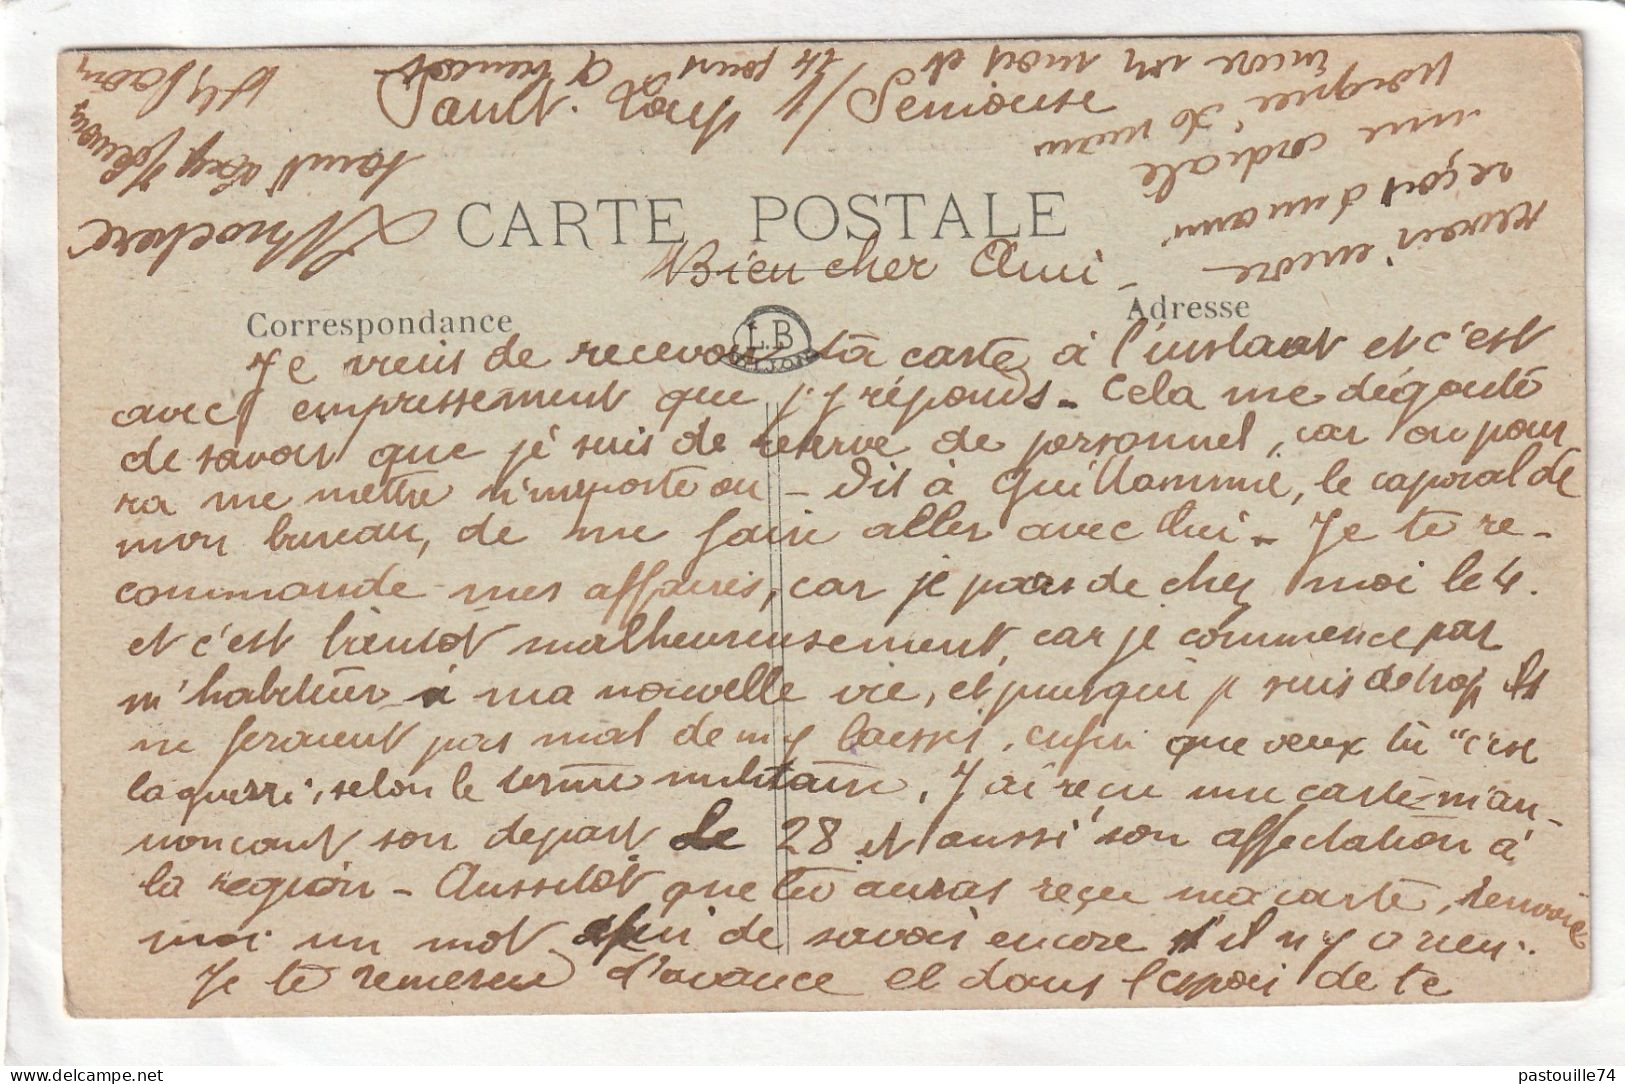 CARTE POSTALE
Bien cher Ami,
Correspondance
L.B
DIJON
Adresse
Je viens de recevoir ta carte à l'instant et c'est
avec empressement que j'y réponds. Cela me dégoute
de savoir que je suis de reserve de personnel, car on pour
ra me mettre n'importe ou – Dit à Guillamme, le caporal de
mon bureau, de me faire aller avec lui. Je te re-
commande mes affaires, car je pars de chez moi le 4.
et c'est bientot malheureusement, car je commence par
m'habituer à ma nouvelle vie, et puisque je suis de trop ils
ne feraient pas mal de m'y laisser, enfin que veux tu "c'est
la guerre", selon le terme militaire. J'ai reçu une carte m'an-
noncant son depart le 28 et aussi son affectation à
la region – Aussitôt que tu auras reçu ma carte, renvoie
moi un mot afin de savoir encore s'il n'y a rien.
Je te remercie d'avance et dans l'espoir de te
revoir encore
reçois d'un ami
une cordiale
poignée de mains
encore un mois et
14 jours
Saint-Loup s/Semouse